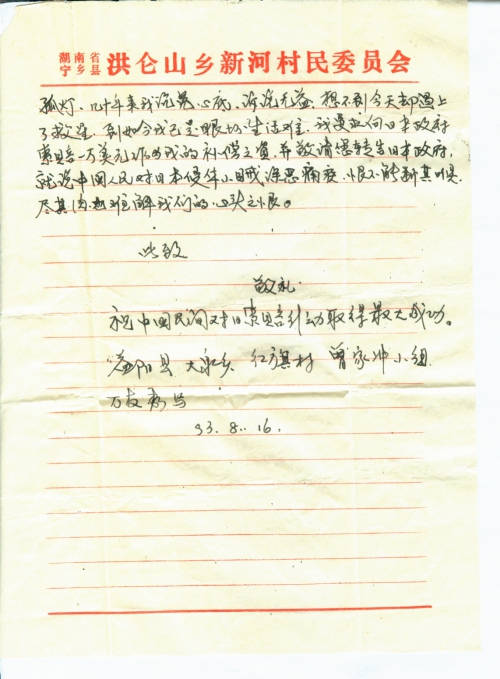 湖南省宁乡县洪仑山乡新河村民委员会
孤灯，几十年来我沉冤心底，诉说无益，想不到今天却遇上
了救星，到如今我已是眼坏生活难，我要求向日本政府
索赔一万美元作为我的补偿之资，并敬请您转告日本政府，
就说中国人民对日本侵华
恨不能
解我们的心头之恨。
此致
敬礼
祝中国民间对日索赔行动取得最大成功。
益阳县 大泉乡 红旗村 曾家冲小组
93.8.16.